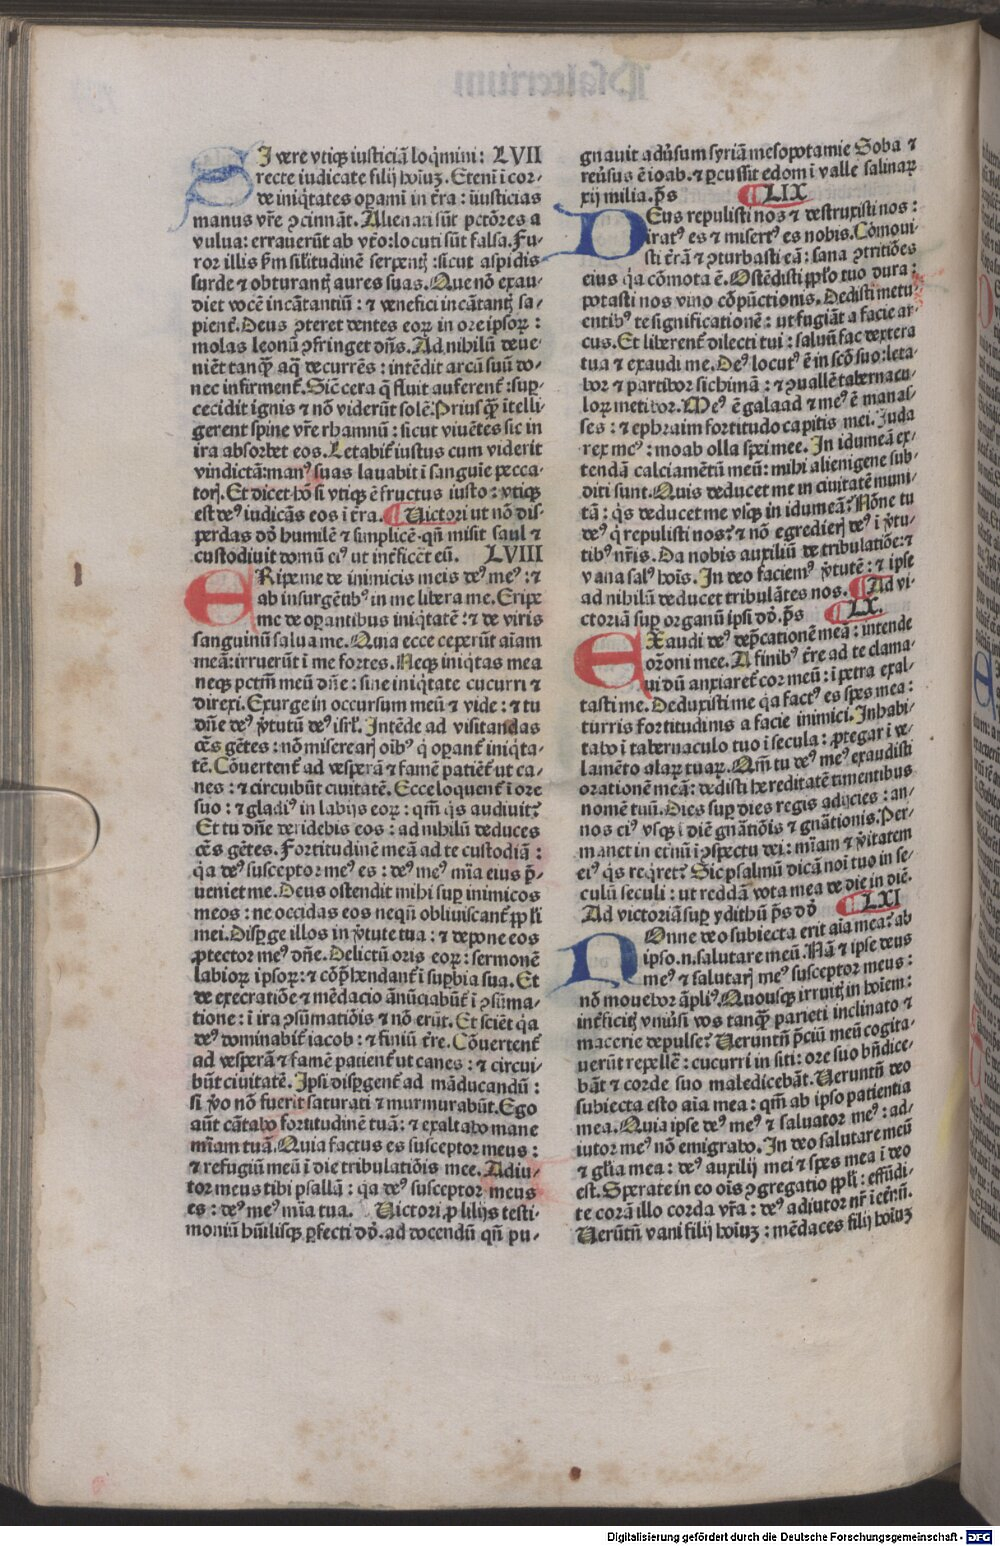 SI vere vtiqꝫ iusticiā loqͥmini: LVII
recte iudicate filij hoīuꝫ. Etenī i cor-
de iniqͥtates oꝑami in t̄ra: iniusticias
manus vr̄e ꝯcinnāt. Alienati sūt pctōres a
vulua: errauerūt ab vt̄o: locuti sūt falsa. Fu-
ror illis ẜm sil̄itudinē serpentꝭ: sicut aspidis
surde ⁊ obturantꝭ aures suas. Que nō exau-
diet vocē incātantiū: ⁊ venefici incātantꝭ sa-
pient̄. Deus ꝯteret dentes eoꝝ in ore ipsoꝝ:
molas leonū ꝯfringet dn̄s. Ad nihilū deue-
niēt tanqͣꝫ aqͣ decurrēs: intēdit arcū suū do-
nec infirment̄. Sic̄ cera q̄ fluit auferent̄: suꝑ-
cecidit ignis ⁊ nō viderūt solē. Priusqͣꝫ ītelli-
gerent spine vr̄e rhamnū: sicut viuētes sic in
ira absorbet eos. Letabit̄ iustus cum viderit
vindictā: manꝰ suas lauabit i sanguīe pecca-
torꝭ. Et dicet hō si vtiqꝫ ē fructus iusto: vtiqꝫ
est deꝰ iudicās eos i t̄ra. Uictori ut nō dis-
perdas dd̄ humilē ⁊ simplicē. qn̄ misit saul ⁊
custodiuit domū eiꝰ ut int̄ficēt eū. LVIII
ERipe me de inimicis meis deꝰ meꝰ: ⁊
ab insurgētibꝰ in me libera me. Eripe
me de oꝑantibus iniqͥtatē: ⁊ de viris
sanguinū salua me. Quia ecce ceperūt aīam
meā: irruerūt i me fortes. Neqꝫ iniqͥtas mea
neqꝫ pctm̄ meū dn̄e: sine iniqͥtate cucurri ⁊
direxi. Exurge in occursum meū ⁊ vide: ⁊ tu
dn̄e deꝰ v̓tutū deꝰ isrl̄. Intēde ad visitandas
oēs gētes: nō miserearꝭ oībꝰ qͥ oꝑant̄ iniqͥta-
tē. Cōuertent̄ ad vesperā ⁊ famē patiēt̄ ut ca-
nes: ⁊ circuibūt ciuitatē. Ecce loquent̄ i ore
suo: ⁊ gladiꝰ in labijs eoꝝ: qm̄ qͥs audiuit?
Et tu dn̄e deridebis eos: ad nihilū deduces
oēs gētes. Fortitudinē meā ad te custodiā:
qͥa deꝰ susceptor meꝰ es: deꝰ meꝰ mīa eius p̄-
ueniet me. Deus ostendit mihi suꝑ inimicos
meos: ne occidas eos neqn̄ obliuiscant̄ ꝓpl̄i
mei. Disꝑge illos in v̓tute tua: ⁊ depone eos
ꝓtector meꝰ dn̄e. Delictū oris eoꝝ: sermonē
labioꝝ ipsoꝝ: ⁊ cōp̄hendant̄ i suꝑbia sua. Et
de execratiōe ⁊ mēdacio ānūciabūt̄ i ꝯsūma-
tione: i ira ꝯsūmatiōis ⁊ nō erūt. Et sciēt qͥa
deꝰ dominabit̄ iacob: ⁊ finiū t̄re. Cōuertent̄
ad vesperā ⁊ famē patient̄ ut canes: ⁊ circui
būt ciuitatē. Ipsi disꝑgent̄ ad māducandū:
si v̓o nō fuerit saturati ⁊ murmurabūt. Ego
aūt cātabo fortitudinē tuā: ⁊ exaltabo mane
mīam tuā. Quia factus es susceptor meus:
⁊ refugiū meū i die tribulatiōis mee. Adiu-
tor meus tibi psallā: qͥa deꝰ susceptor meus
es: deꝰ meꝰ mīa tua. Uictori. ꝓ lilijs testi-
moniū hūilisqꝫ ꝑfecti dd̄. ad docendū qn̄ pu-
gnauit adūsum syriā mesopotamie Soba ⁊
reūsus ē ioab. ⁊ ꝑcussit edom i valle salinaꝝ
xij milia. p̄s LIX
DEus repulisti nos ⁊ destruxisti nos:
iratꝰ es ⁊ misertꝰ es nobis. Cōmoui
sti t̄rā ⁊ ꝯturbasti eā: sana ꝯtritiōes
eius qͥa cōmota ē. Ostēdisti ꝓpl̄o tuo dura:
potasti nos vino cōpūctionis. Dedisti metu-
entibꝰ te significationē: ut fugiāt a facie ar-
cus. Et liberent̄ dilecti tui: saluū fac dextera
tua ⁊ exaudi me. Deꝰ locutꝰ ē in sc̄o suo: leta-
bor ⁊ partibor sichimā: ⁊ ꝯuallē tabernacu-
loꝝ metibor. Meꝰ ē galaad ⁊ meꝰ ē manas-
ses: ⁊ ephraim fortitudo capitis mei. Juda
rex meꝰ: moab olla spei mee. In idumeā ex-
tendā calciamētū meū: mihi alienigene sub-
diti sunt. Quis deducet me in ciuitatē muni-
tā: qͥs deducet me vsqꝫ in idumeā? Nōne tu
deꝰ qͥ repulisti nos? ⁊ nō egredierꝭ deꝰ i v̓tu-
tibꝰ nr̄is. Da nobis auxiliū de tribulatiōe: ⁊
vana salꝰ hoīs. In deo faciemꝰ v̓tutē: ⁊ ipse
ad nihilū deducet tribulātes nos. Ad vi-
ctoriā suꝑ organū ipsi dd̄. p̄s LX.
EXaudi deꝰ dep̄cationē meā: intende
oꝛ̄oni mee. A finibꝰ t̄re ad te clama-
ui dū anxiaret̄ cor meū: i petra exal-
tasti me. Deduxisti me qͥa factꝰ es spes mea:
turris fortitudinis a facie inimici. Inhabi-
tabo i tabernaculo tuo i secula: ꝓtegar i ve-
lamēto alaꝝ tuaꝝ. Qm̄ tu deꝰ meꝰ exaudisti
orationē meā: dedisti hereditatē timentibus
nomē tuū. Dies suꝑ dies regis adijcies: an-
nos eiꝰ vsqꝫ i diē gn̄atiōis ⁊ gn̄ationis. Per-
manet in et̄nū i ꝯspectu dei: mīam ⁊ v̓itatem
eiꝰ qͥs reqͥret? Sic psalmū dicā noī tuo in se-
culū seculi: ut reddā vota mea de die in diē.
Ad victoriā suꝑ ydithū p̄s dd̄ LXI
NOnne deo subiecta erit aīa mea? ab
ipso .n. salutare meū. Nā ⁊ ipse deus
meꝰ ⁊ salutarꝭ meꝰ susceptor meus:
nō mouebor āpliꝰ. Quousqꝫ irruitꝭ in hoīem:
int̄ficitꝭ vniūsi vos tanqͣꝫ parieti inclinato ⁊
macerie depulse? Ueruntn̄ p̄ciū meū cogita-
uerūt repellē: cucurri in siti: ore suo bn̄dice-
bāt ⁊ corde suo maledicebāt. Ueruntn̄ deo
subiecta esto aīa mea: qm̄ ab ipso patientia
mea. Quia ipse deꝰ meꝰ ⁊ saluator meꝰ: ad-
iutor meꝰ nō emigrabo. In deo salutare meū
⁊ gl̄ia mea: deꝰ auxilij mei ⁊ spes mea i deo
est. Sperate in eo oīs ꝯgregatio ꝓpl̄i: effūdi-
te corā illo corda vr̄a: deꝰ adiutor nr̄ i et̄nū.
Uerūtn̄ vani filij hoīuꝫ: mēdaces filij hoīuꝫ
Digitalisierung gefördert durch die Deutsche Forschungsgemeinschaft - DFG